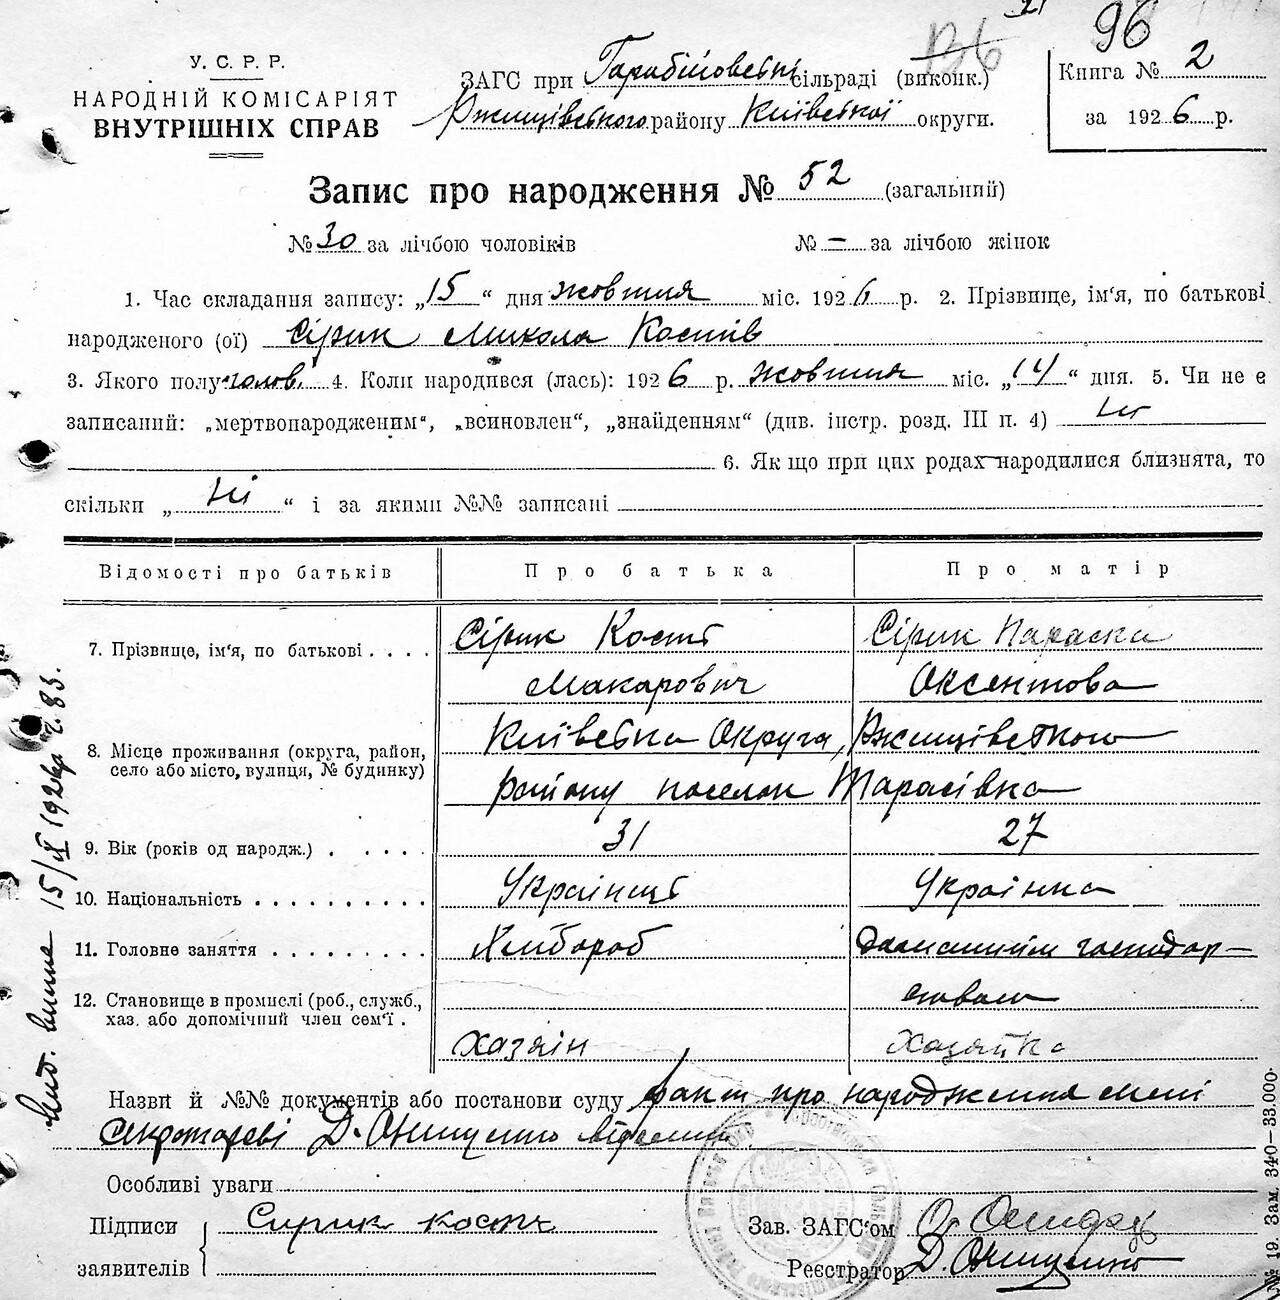 96
У. С. Р. Р.
НАРОДНІЙ КОМІСАРІЯТ
ВНУТРІШНІХ СПРАВ
ЗАГС при сільраді (виконк.)
Ржищівського району Київської округи.
Книга № 2
за 1926 р.
Запис про народження № 52 (загальний)
№ 30 за лічбою чоловіків № — за лічбою жінок
1. Час складання запису: „15“ дня жовтня міс. 1926 р. 2. Прізвище, ім‘я, по батькові
народженого (ої) Сірик Микола Костів
3. Якого полу чолов. 4. Коли народився (лась): 1926 р. жовтня міс. „14“ дня. 5. Чи не є
записаний: „мертвонародженим“, „всиновлен“, „знайденням“ (див. інстр. розд. III п. 4) ні
6. Як що при цих родах народилися близнята, то
скільки „ні“ і за якими №№ записані
Відомості про батьків Про батька Про матір
7. Прізвище, ім‘я, по батькові Сірик Кость Сірик Параска
Макарович Оксентова
8. Місце проживання (округа, район, Київська Округа, Ржищівського
село або місто, вулиця, № будинку) району поселок Тарасівка
9. Вік (років од народж.) 31 27
10. Національність Українець Українка
11. Головне заняття Хлібороб Домашнім господар-
ством
12. Становище в промислі (роб., служб.,
хаз. або допомічний член сем‘ї Хазяін Хазяйка
Назви й №№ документів або постанови суду факт про народження мені
секретареві Д. Онищенко
Особливі уваги
Підписи Сирик кость Зав. ЗАГС‘ом
заявителів Реєстратор Д. Онищенко
15/X 1926 р.
№ 19. Зам. 340—33.000.